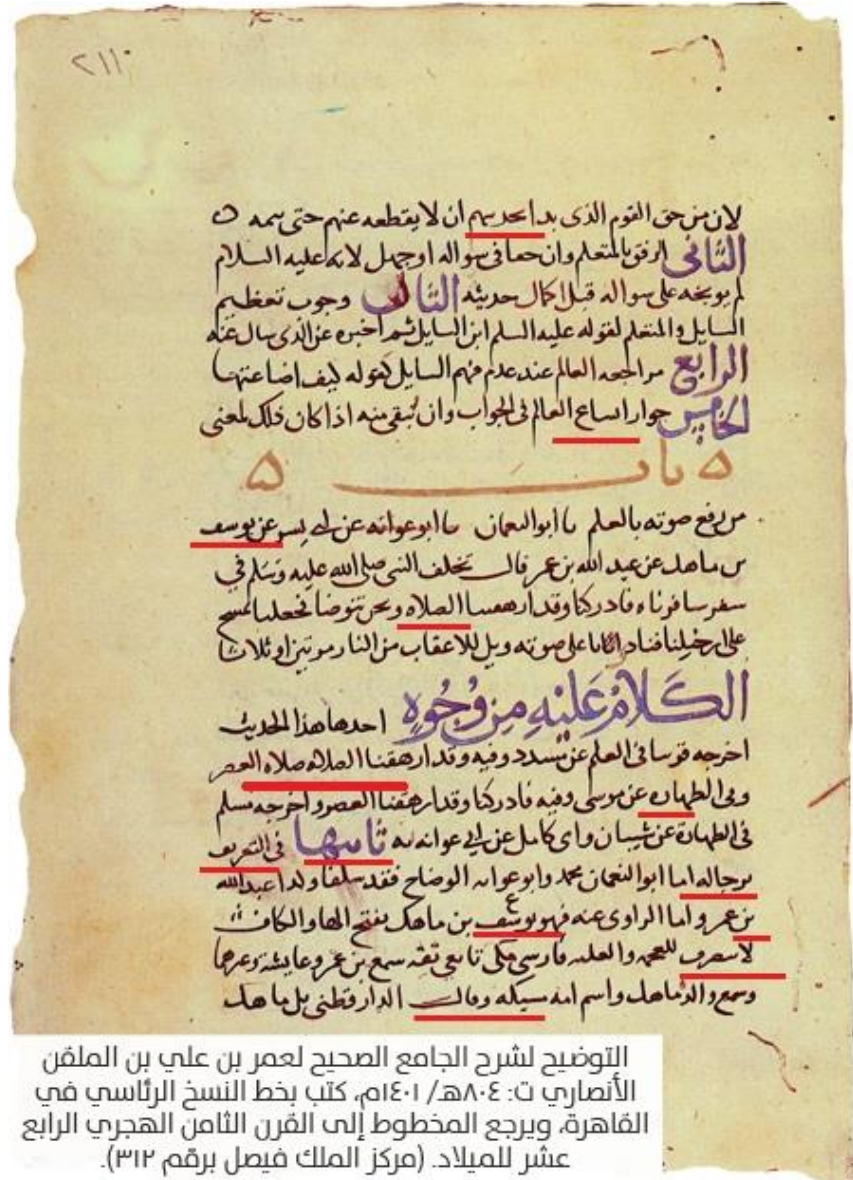 ٢١١
لان من حق القوم الذى بدا بحديثهم ان لا يقطعه عنهم حتى يتمه ه
الثانى الرفق بالمتعلم وان جفا فى سواله او جهل لانه عليه السلام
لم يوبخه على سواله قبل اكمال حديثه الثالث وجوب تعظيم
السايل والمتعلم لقوله عليه السلم اين السايل ثم اخبره عن الذى سال عنه
الرابع مراجعه العالم عند عدم فهم السايل كقوله كيف اضاعتها
الخامس جواز اتساع العالم فى الجواب وان تبقى منه اذا كان ذلك لمعنى
ه باب ه
من رفع صوته بالعلم ثنا ابو النعمان ثنا ابو عوانه عن ابى بشر عن يوسف
بن ماهك عن عبد الله بن عمر قال تخلف النبى صلى الله عليه وسلم في
سفر سافرناه فادركنا وقد ارهقتنا الصلاه ونحن نتوضا فجعلنا نمسح
على ارجلنا فنادانا باعلى صوته ويل للاعقاب من النار مرتين او ثلاثا
الكَلامُ عَليْهِ مِن وُجُوهٍ احدها هذا الحديث
اخرجه قريبا فى العلم عن مسدد وفيه وقد ارهقتنا الصلاه صلاه العصر
وفى الطهاره عن موسى وفيه فادركنا وقد ارهقتنا العصر واخرجه مسلم
فى الطهارة عن شيبان وابى كامل عن ابى عوانه به ثانيها فى التعريف
برجاله اما ابو النعمان محمد وابو عوانه الوضاح فقد سلفا ولذا عبد الله
بن عمرو اما الراوى عنه فهو يوسف بن ماهك بفتح الها والكاف
لا ينصرف للعجمه والعلميه فارسى مكى تابعى ثقه سمع بن عمرو عايشه وغيرهما
وسمع والده ماهك واسم امه مسيكه وقال الدارقطنى بل ماهك
التوضيح لشرح الجامع الصحيح لعمر بن علي بن الملقن
الأنصاري ت: ٨٠٤هـ/ ١٤٠١م، كتب بخط النسخ الرئاسي في
القاهرة، ويرجع المخطوط إلى القرن الثامن الهجري الرابع
عشر للميلاد. (مركز الملك فيصل برقم ٣١٢).